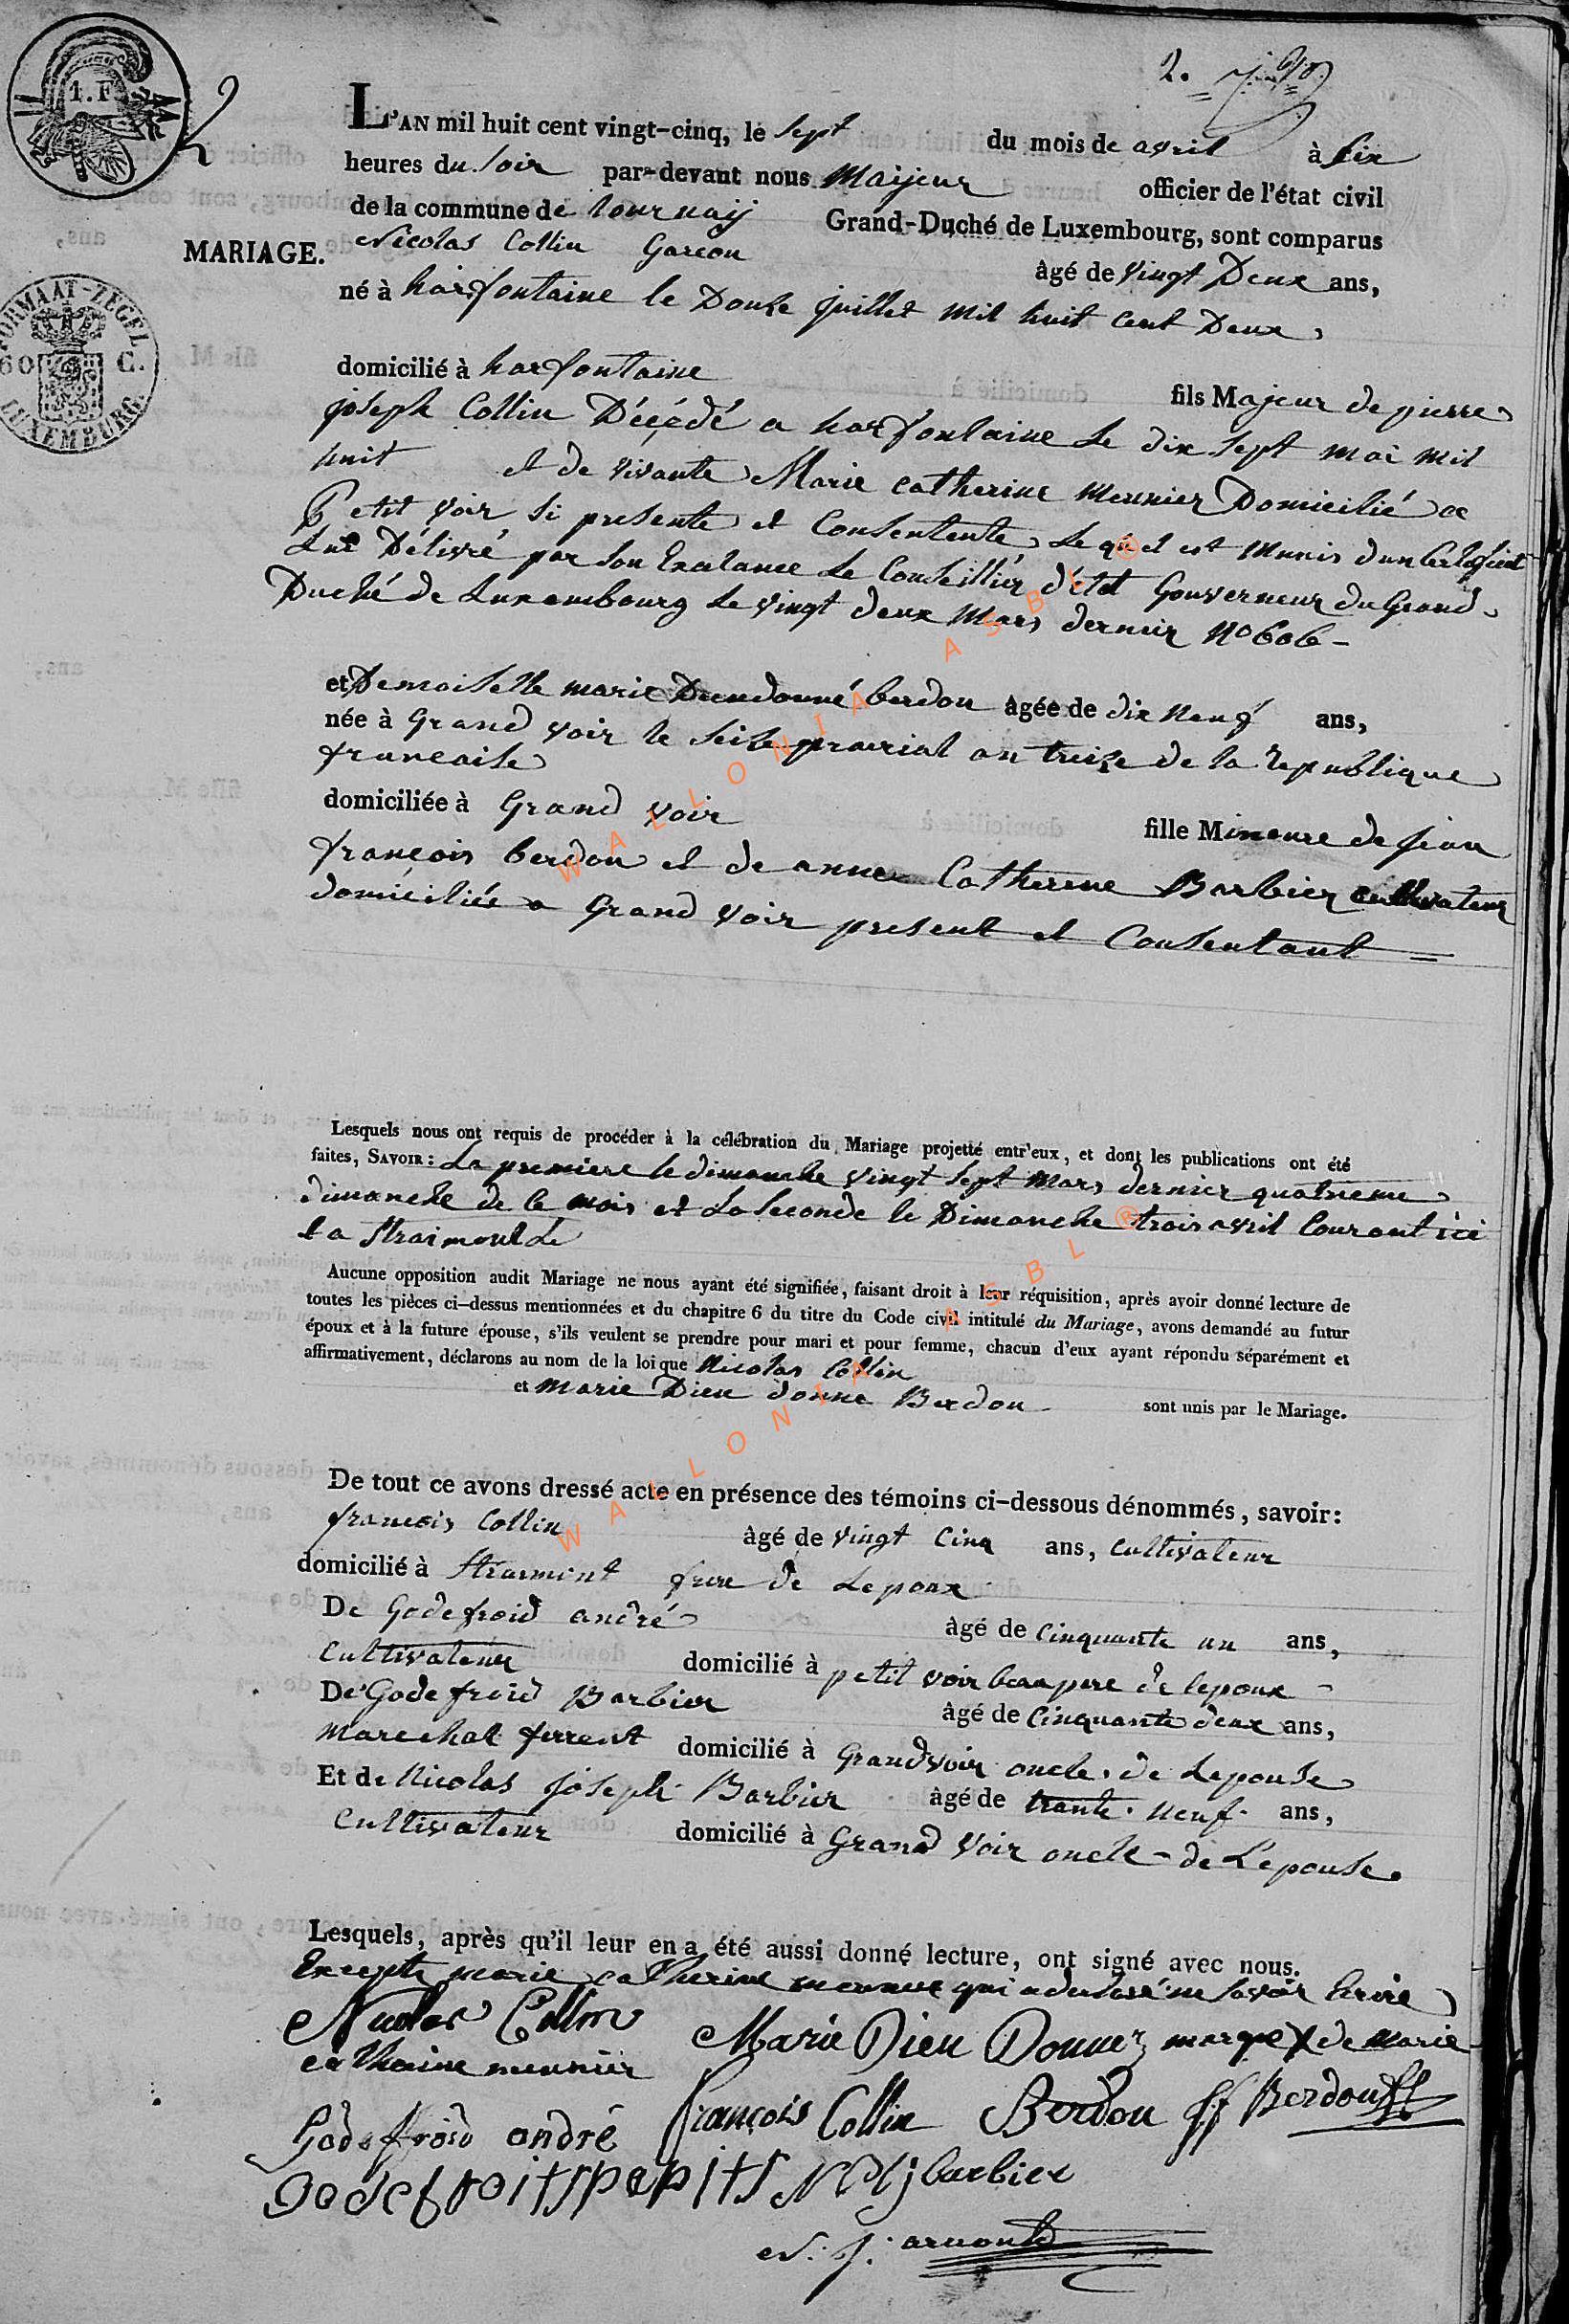 2.
1. F
2
L'AN mil huit cent vingt-cinq, le Sept du mois de avril à Six
heures du Soir par-devant nous Maijeur officier de l'état civil
de la commune de tournaij Grand-Duché de Luxembourg, sont comparus
MARIAGE.
Nicolas Collin Garcon âgé de Vingt Deux ans,
né à harfontaine le Douse juillet mil huit cent Deux
FORMAAT-ZEGEL
60 C.
LUXEMBURG.
domicilié à harfontaine fils Majeur de pierre
joseph Collin Décédé a harfontaine Le dix Sept mai mil
huit et de vivante Marie catherine Meunier Domicilié a
Petit Voir Si presente et Consentente, Le quel est Munis dun Certificat
Lui Délivré par Son Exalance Le Conseillier d'état Gouverneur du Grand
Duché de Luxembourg Le vingt deux Mars dernier No 606 -
et Demoiselle marie Deudonné berdon âgée de dix Neuf ans,
née à Grand Voir le Seise prairial an treize de la republique
francaise
domiciliée à Grand Voir fille Mineure de jean
françois berdon et de anne Catherine Barbier cultivateur
domiciliés a Grand Voir present et Consentant =
Lesquels nous ont requis de procéder à la célébration du Mariage projetté entr'eux, et dont les publications ont été
faites, SAVOIR : La premiere le dimanche vingt Sept Mars dernier quatrieme
dimanche de Ce mois et La Seconde le Dimanche trois avril Courant ici
et a Straimont
Aucune opposition audit Mariage ne nous ayant été signifiée, faisant droit à leur réquisition, après avoir donné lecture de
toutes les pièces ci-dessus mentionnées et du chapitre 6 du titre du Code civil intitulé du Mariage, avons demandé au futur
époux et à la future épouse, s'ils veulent se prendre pour mari et pour femme, chacun d'eux ayant répondu séparément et
affirmativement, déclarons au nom de la loi que Nicolas Collin
et Marie Dieu donne Berdon sont unis par le Mariage.
De tout ce avons dressé acte en présence des témoins ci-dessous dénommés, savoir:
francois Collin âgé de Vingt Cinq ans, Cultivateur
domicilié à Straimont frere de Lepoux
De Godefroid andré âgé de Cinquante un ans,
Cultivateur domicilié à petit voir beaupere de lepoux
De Godefroid Barbier âgé de Cinquante deux ans,
Marechal ferrent domicilié à Grandvoir oncle de Lepouse
Et de Nicolas joseph Barbier âgé de trante neuf ans,
Cultivateur domicilié à Grand Voir oncle de Lepouse
Lesquels, après qu'il leur en a été aussi donné lecture, ont signé avec nous.
Excepte marie catherine meunier qui a declaré ne Savoir Ecrire
Nicolas Collin Marie Dieu Donnez marque X de Marie
catherine meunier
Godefroid andré François Collin Berdon J f Berdon
Godefroit N J barbier
N. J. arnould
WALLONIA ASBL ®
WALLONIA ASBL ®